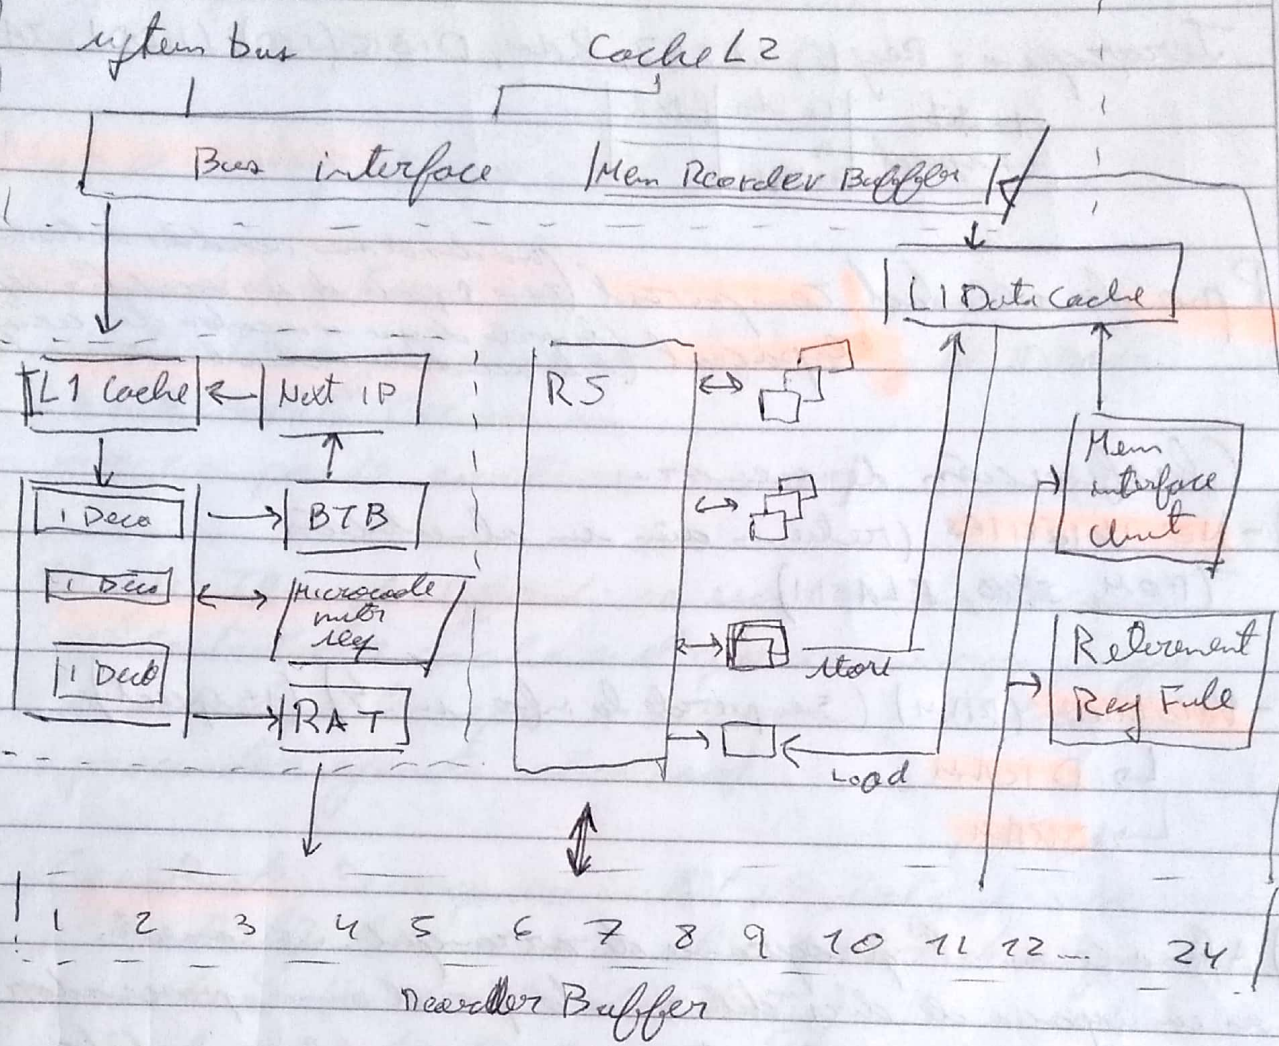 system bus
Cache L2
Bus interface
Mem Reorder Buffer
L1 Data Cache
L1 Cache
Next IP
RS
i Deco
BTB
Mem
interface
Unit
i Deco
Microcode
i Deco
RAT
store
Retirement
Reg File
Load
1 2 3 4 5 6 7 8 9 10 11 12... 24
Reorder Buffer